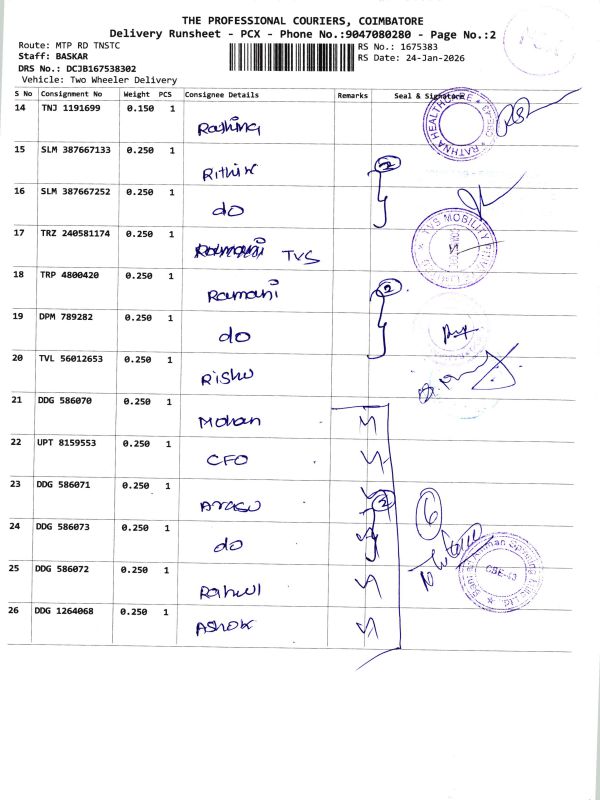 THE PROFESSIONAL COURIERS, COIMBATORE
Delivery Runsheet - PCX - Phone No.:9047080280 - Page No.:2
Route: MTP RD TNSTC
RS No.: 1675383
Staff: BASKAR
RS Date: 24-Jan-2026
DRS No.: DCJB167538302
Vehicle: Two Wheeler Delivery
S No Consignment No Weight PCS Consignee Details Remarks Seal & Signature
14 TNJ 1191699 0.150 1
RATHNA HEALTHCARE
15 SLM 387667133 0.250 1 Rithik
2
16 SLM 387667252 0.250 1 do
17 TRZ 240581174 0.250 1 Ramani TVS
TVS MOBILITY
18 TRP 4800420 0.250 1 Ramani
2
19 DPM 789282 0.250 1 do
20 TVL 56012653 0.250 1 Rishu
21 DDG 586070 0.250 1 Mohan
22 UPT 8159553 0.250 1 CFO
23 DDG 586071 0.250 1 Arasu
2
6
24 DDG 586073 0.250 1 do
25 DDG 586072 0.250 1 Rahul
CBE-43
26 DDG 1264068 0.250 1 Ashok